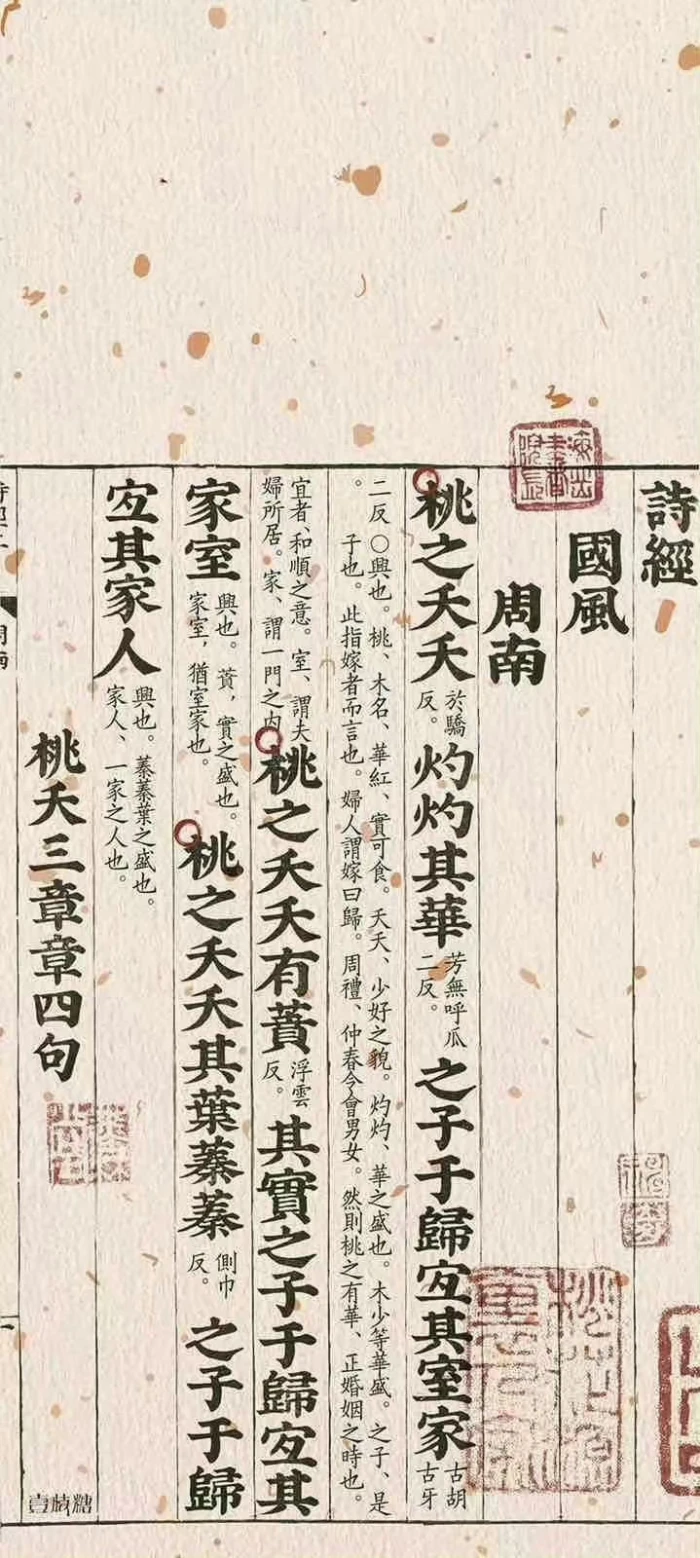 詩經
國風
周南
桃之夭夭於驕反。灼灼其華芳無呼瓜二反。之子于歸宜其室家古胡古牙
二反〇興也。桃、木名、華紅、實可食。夭夭、少好之貌。灼灼、華之盛也。木少等華盛。之子、是
子也。此指嫁者而言也。婦人謂嫁曰歸。周禮、仲春今會男女。然則桃之有華、正婚姻之時也。
宜者、和順之意。室、謂夫
婦所居。家、謂一門之内。
桃之夭夭有蕡浮雲反。其實之子于歸宜其
家室興也。蕡，實之盛也。家室，猶室家也。
桃之夭夭其葉蓁蓁側巾反。之子于歸
宜其家人興也。蓁蓁葉之盛也。家人、一家之人也。
桃夭三章章四句